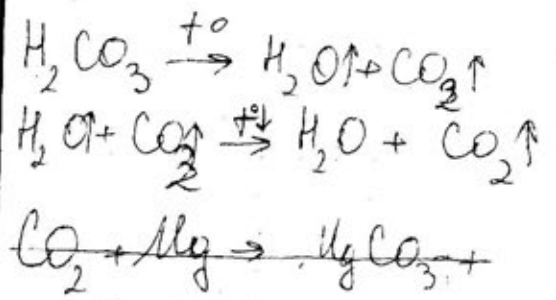 H₂CO₃ →(t°) H₂O↑ + CO₂↑
H₂O↑ + CO₂↑ →(t°↓) H₂O + CO₂↑
CO₂ + Mg → MgCO₃ +